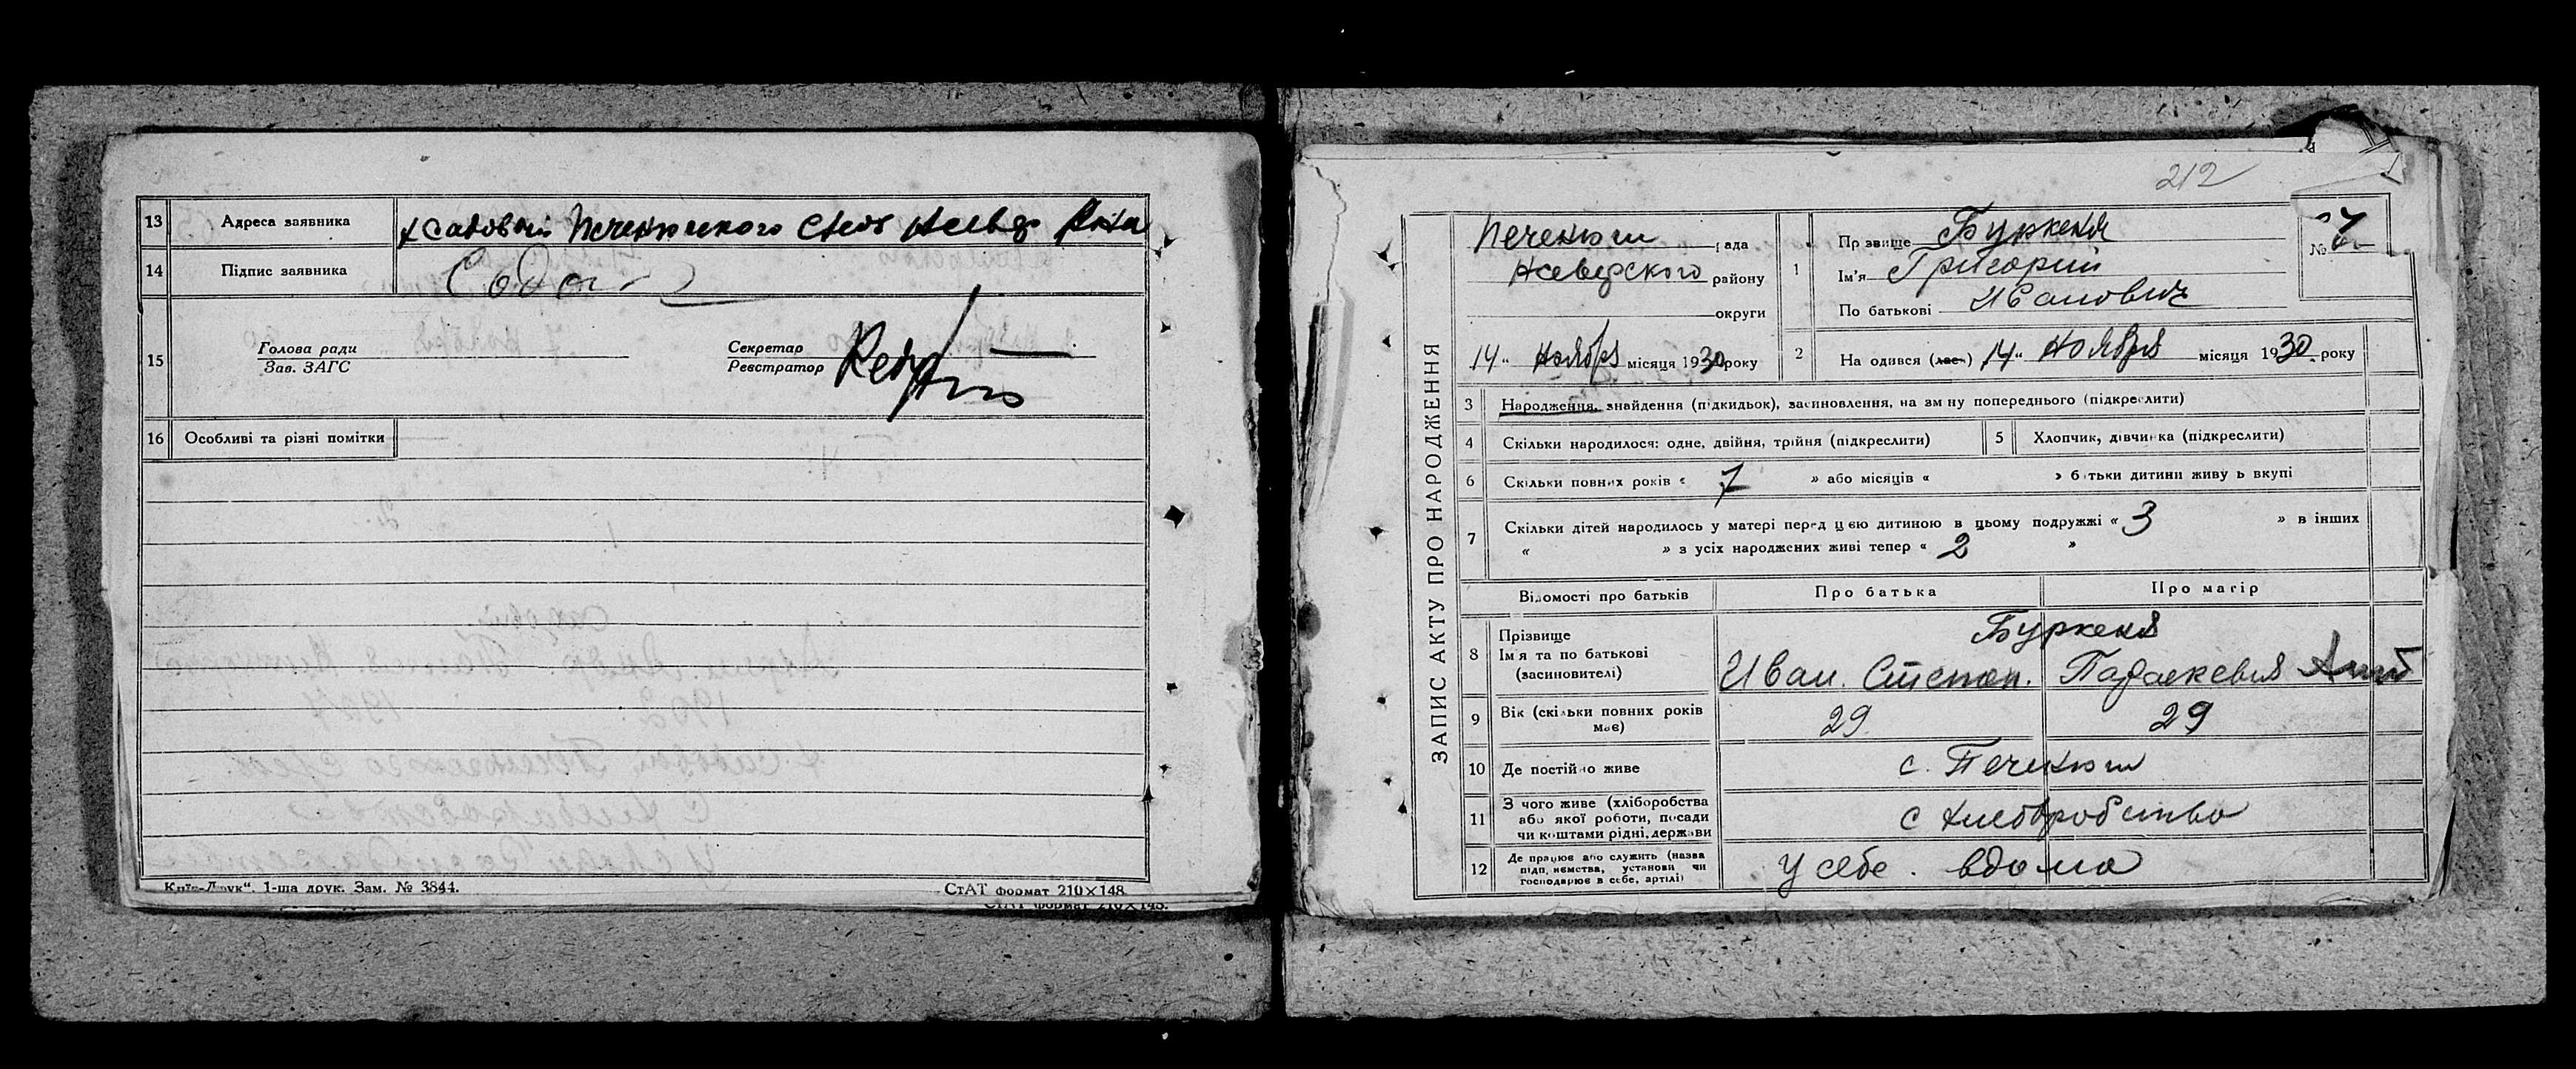 13 Адреса заявника х Садовый Печенюгского
14 Підпис заявника
15 Голова ради
Зав. ЗАГС
Секретар
Реєстратор
16 Особливі та різні помітки
Київ-Друк“. 1-ша друк. Зам. № 3844.
СтАТ формат 210×148.
212
ЗАПИС АКТУ ПРО НАРОДЖЕННЯ
Печенюги рада
района району
округи
14 „ Ноября місяця 1930 року
1 Прізвище Буркеня
Ім'я Григорий
По батькові Иванович
№
2 На одився (лась) 14 „ Ноября місяця 1930. року
3 Народження, знайдення (підкидьок), засиновлення, на зміну попереднього (підкреслити)
4 Скільки народилося: одне, двійня, трійня (підкреслити)
5 Хлопчик, дівчинка (підкреслити)
6 Скільки повних років « 7 » або місяців « » батьки дитини живуть вкупі
7 Скільки дітей народилось у матері перед цією дитиною в цьому подружжі « 3 » в інших
« » з усіх народжених живі тепер « 2 »
Відомості про батьків Про батька Про матір
8 Прізвище Буркеня
Ім'я та по батькові Иван. Степан. Параскевия
(засновителі)
9 Вік (скільки повних років 29 29
має)
10 Де постійно живе с. Печенюги
11 З чого живе (хліборобства
або якої роботи, посади с хлеборобство
чи коштами рідні, держави
12 Де працює або служить (назва
підприємства, установи, чи у себе. вдома
господарює в себе, артілі)